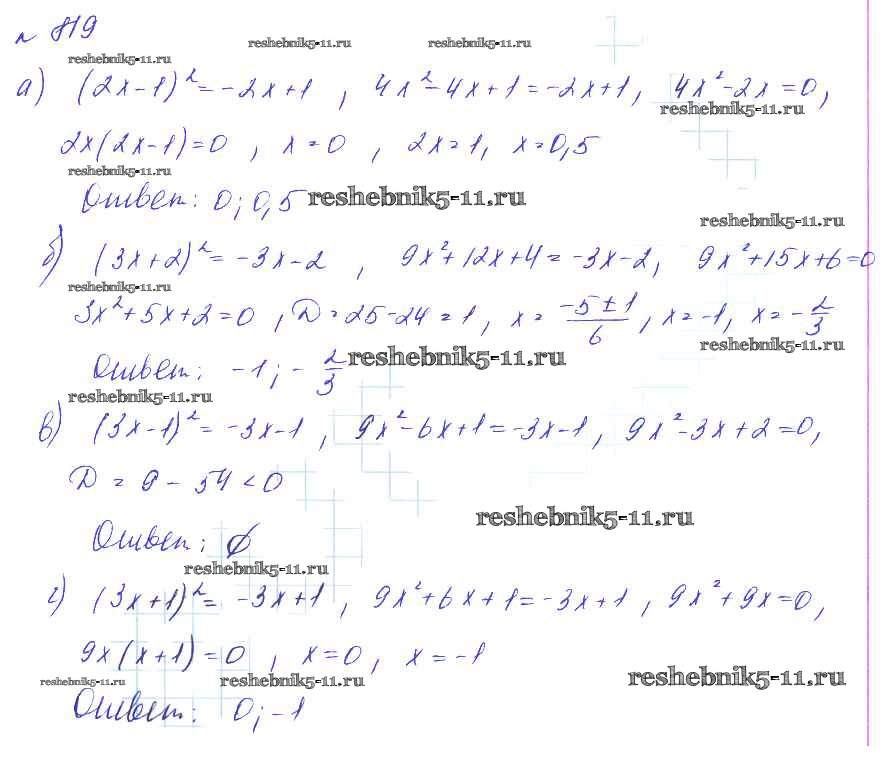 № 819
reshebnik5-11.ru reshebnik5-11.ru
reshebnik5-11.ru
а) (2x-1)² = -2x+1 , 4x²-4x+1 = -2x+1, 4x²-2x = 0,
reshebnik5-11.ru
2x(2x-1) = 0 , x = 0 , 2x = 1, x = 0,5
reshebnik5-11.ru
Ответ: 0; 0,5 reshebnik5-11.ru
reshebnik5-11.ru
б) (3x+2)² = -3x-2 , 9x²+12x+4 = -3x-2, 9x²+15x+6=0
reshebnik5-11.ru
3x²+5x+2=0 , D = 25-24 = 1 , x = (-5±1)/6 , x = -1, x = -2/3
reshebnik5-11.ru
Ответ: -1; -2/3 reshebnik5-11.ru
reshebnik5-11.ru
в) (3x-1)² = -3x-1 , 9x²-6x+1 = -3x-1 , 9x²-3x+2 = 0,
D = 9 - 54 < 0
reshebnik5-11.ru
Ответ: ∅
reshebnik5-11.ru
г) (3x+1)² = -3x+1 , 9x²+6x+1 = -3x+1 , 9x²+9x=0,
9x(x+1) = 0 , x=0, x = -1
reshebnik5-11.ru reshebnik5-11.ru reshebnik5-11.ru
Ответ: 0; -1